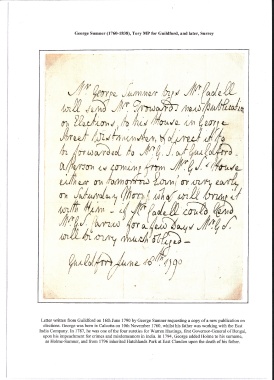 George Sumner (1760-1838), Tory MP for Guildford, and later, Surrey
Mr George Sumner begs Mr Cadell
will send Mr Troward's new publication
on Elections, to his House in George
Street Westminster, & direct it to
be forwarded to Mr G.S. at Guildford.
a person is coming from Mr G.S.'s House
either on tomorrow or very early
on Saturday Morn: who will bring it
with him - if Mr Cadell could send
for a few days Mr G.S.
will be very much obliged -
Guildford June 16th 1790
Letter written from Guildford on 16th June 1790 by George Sumner requesting a copy of a new publication on
elections. George was born in Calcutta on 10th November 1760, whilst his father was working with the East
India Company. In 1787, he was one of the four sureties for Warren Hastings, first Governor-General of Bengal,
upon his impeachment for crimes and misdemeanors in India. In 1794, George added Holme to his surname,
as Holme-Sumner, and from 1796 inherited Hatchlands Park at East Clandon upon the death of his father.